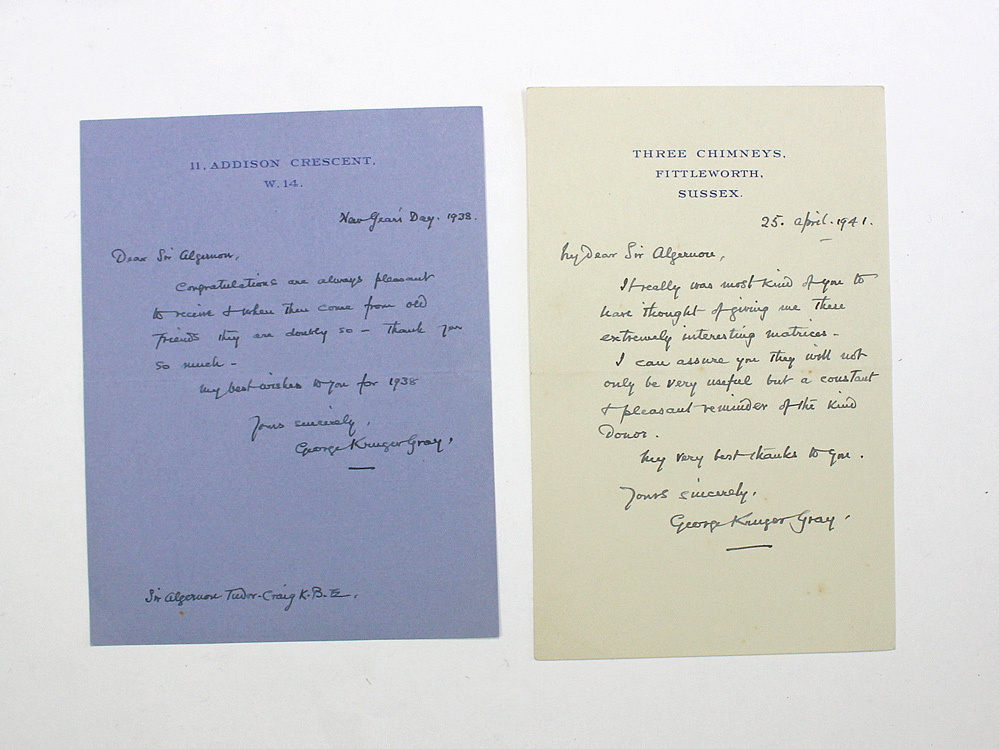 11, ADDISON CRESCENT,
W.14.
New Year's Day. 1938.
Dear Sir Algernon,
Congratulations are always pleasant
to receive & when they come from old
Friends they are doubly so — Thank you
so much —
My best wishes to you for 1938
Yours sincerely,
George Kruger Gray,
Sir Algernon Tudor-Craig K.B.E.,
THREE CHIMNEYS,
FITTLEWORTH,
SUSSEX.
25. April. 1941.
My Dear Sir Algernon,
It really was most kind of you to
have thought of giving me these
extremely interesting matrices —
I can assure you they will not
only be very useful but a constant
& pleasant reminder of the kind
Donor.
My very best thanks to you.
Yours sincerely,
George Kruger Gray,